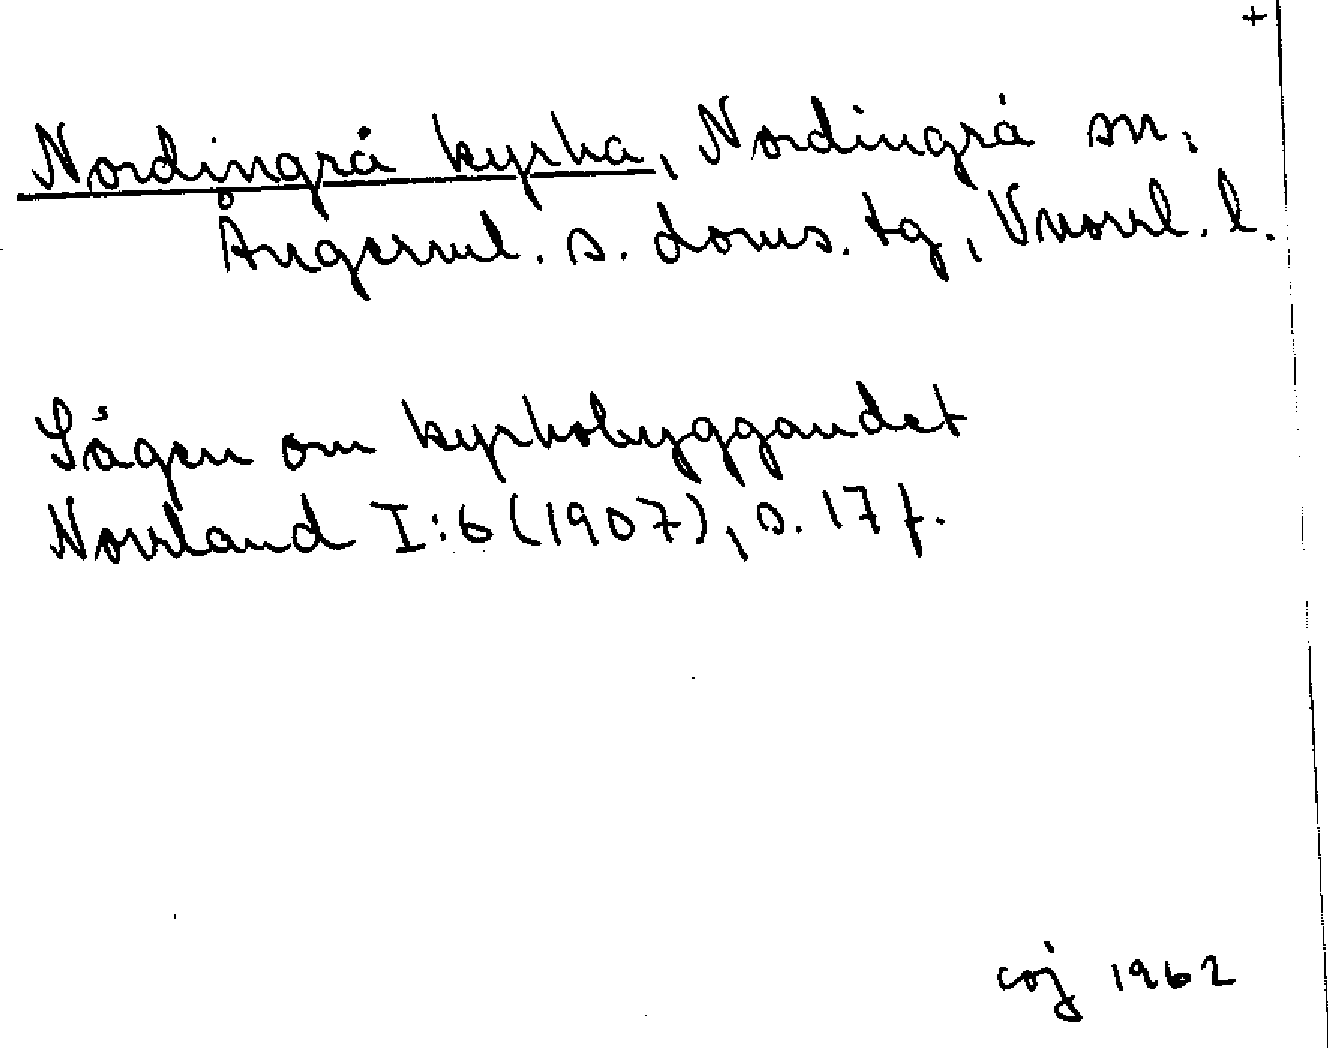 +
Nordingrå kyrka, Nordingrå sn,
Ångerml. s. doms. tg, Vnorrl. l.
Sägen om kyrkobyggandet
Norrland I:6 (1907), s. 17 f.
coj 1962